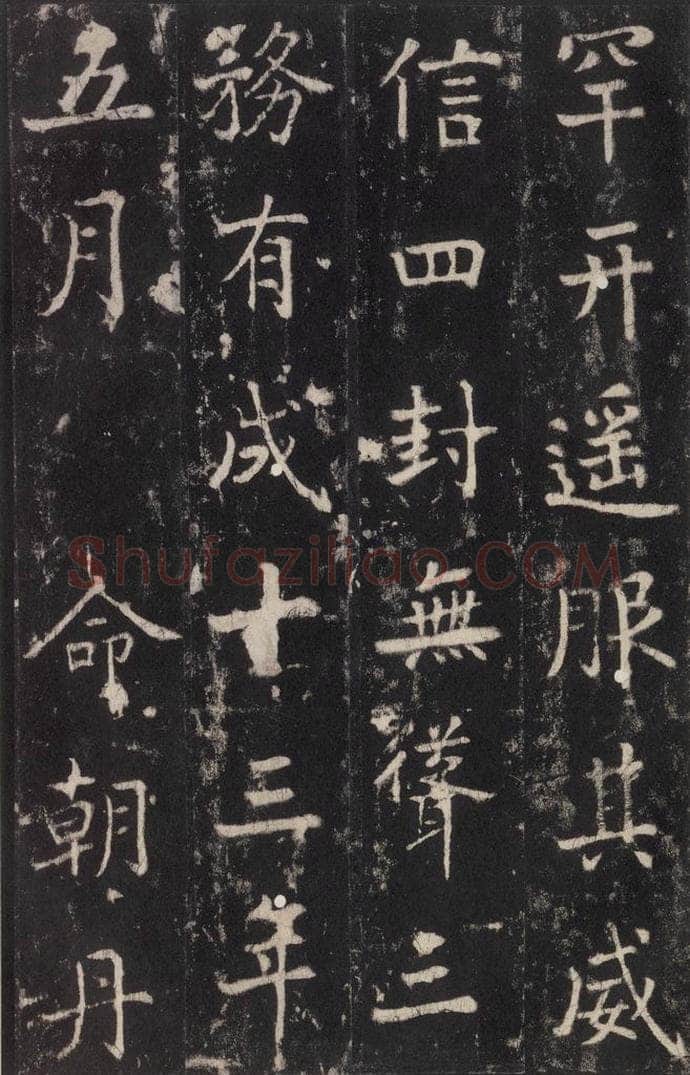 罕开遥服其威
信四封無聳三
務有成十三年
五月 命朝丹
Shufaziliao.COM